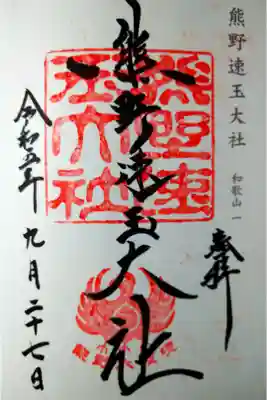 熊野速玉大社
和歌山 一
奉拝
熊野速玉大社
熊野速
玉大社
令和五年 九月 二十七日